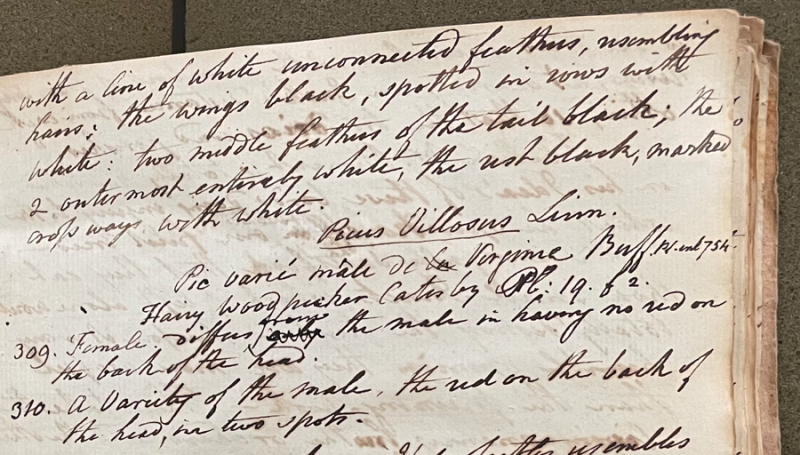 with a line of white unconnected feathers, resembling
hairs; the wings black, spotted in rows with
white: two middle feathers of the tail black; the
2 outermost entirely white, the rest black, marked
crossways with white.
Picus Villosus Linn.
Pic varié mâle de la Virginie Buff. Pl. enl 754.
Hairy woodpecker Catesby Pl: 19. f 2.
309. Female differs from the male in having no red on
the back of the head.
310. A Variety of the male, the red on the back of
the head, in two spots.
resembles